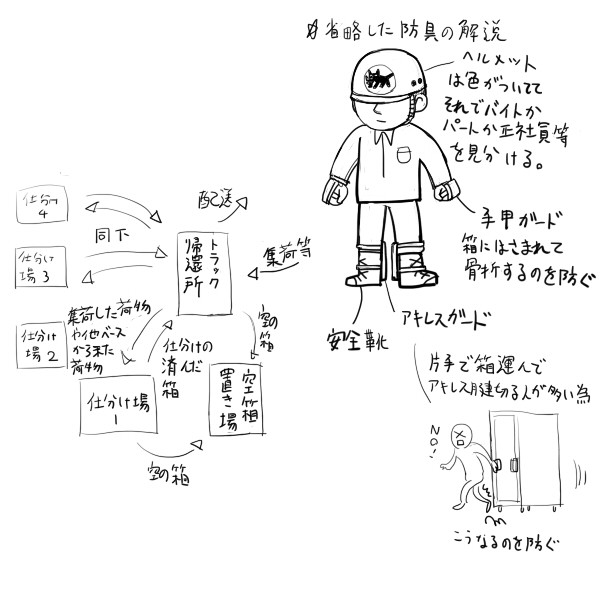 省略した防具の解説
ヘルメット
は色がついてて
それでバイトか
パートか正社員等
を見分ける。
手甲ガード
箱にはさまれて
骨折するのを防ぐ
アキレスガード
安全靴
片手で箱運んで
アキレス腱切る人が多い為
NO!
こうなるのを防ぐ
仕分け
4
配送
同下
トラック
帰還所
集荷等
仕分け
場3
集荷した荷物
や他ベース
から来た
荷物
空の箱
仕分け
場2
仕分けの
済んだ
箱
仕分け場
1
空箱
置き場
空の箱